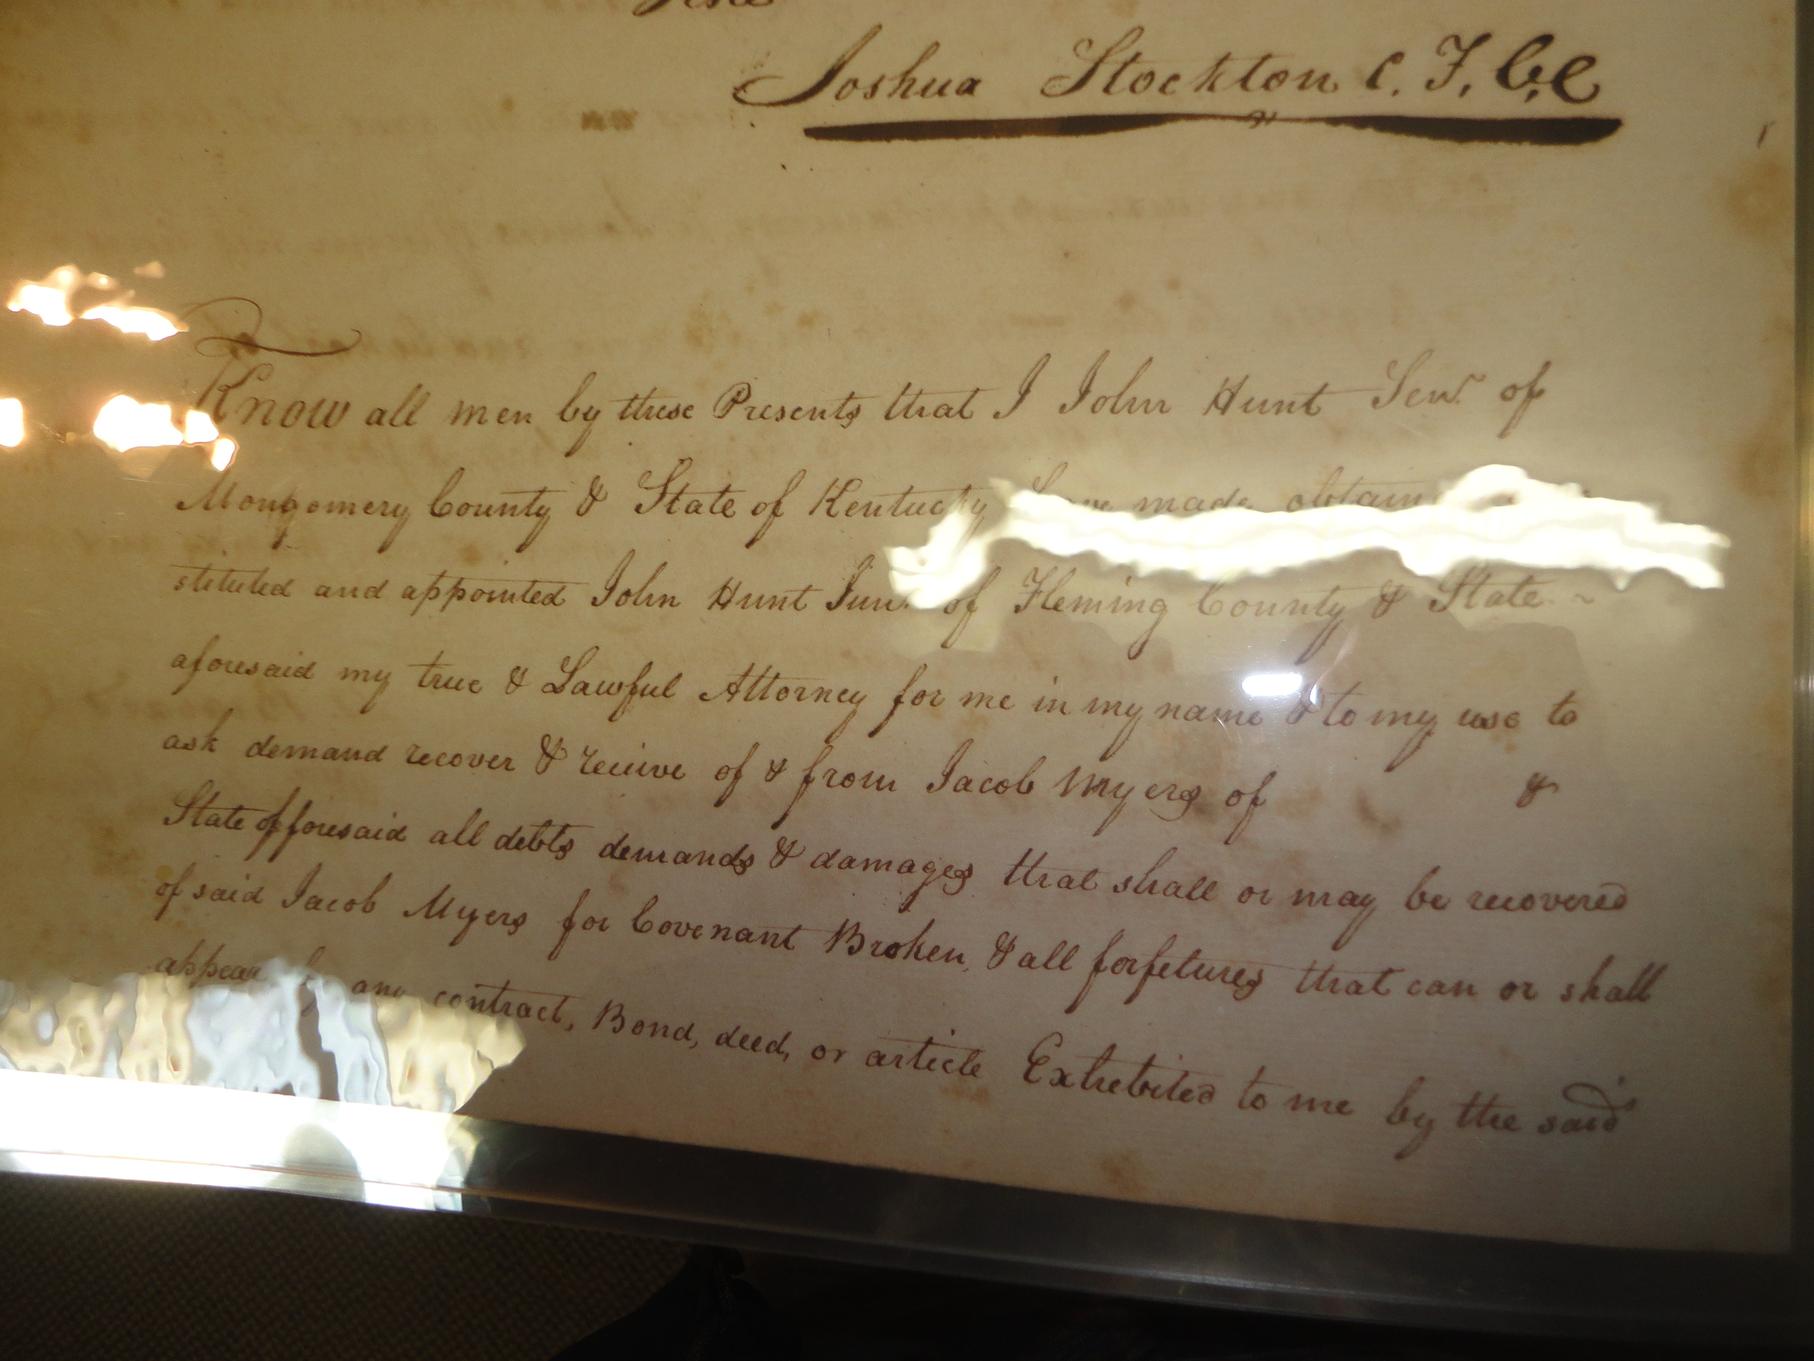 Teste
Joshua Stockton C. F. C. C
Know all men by these Presents that I John Hunt Senr. of
Montgomery County & State of Kentucky have made obtain
stituted and appointed John Hunt Junr. of Fleming County & State ~
aforesaid my true & Lawful Attorney for me in my name & to my use to
ask demand recover & receive of & from Jacob Myers of &
State afforesaid all debts demands & damages that shall or may be recovered
of said Jacob Myers for Covenant Broken, & all forfetures that can or shall
appear by any contract, Bond, deed, or article Exhebited to me by the said